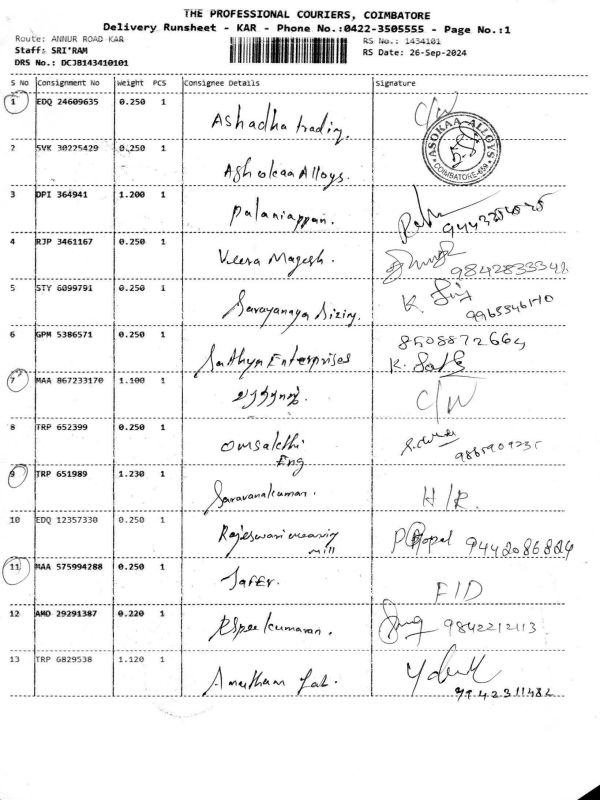 THE PROFESSIONAL COURIERS, COIMBATORE
Delivery Runsheet - KAR - Phone No.:0422-3505555 - Page No.:1
Route: ANNUR ROAD KAR RS No.: 1434101
Staff: SRI'RAM RS Date: 26-Sep-2024
DRS No.: DCJB143410101
S No Consignment No Weight PCS Consignee Details Signature
1 EDQ 24609635 0.250 1 Ashadha trading. C/W
2 SVK 30225429 0.250 1 Ashokaa Alloys. ASOKAA ALLOYS COIMBATORE
3 DPI 364941 1.200 1 Palaniappan.
4 RJP 3461167 0.250 1 Veera Magesh. 9842833342
5 STY 6099791 0.250 1 Sarayanaya Sizing. K.
6 GPM 5386571 0.250 1 Sathya Enterprises 8508872664
K.
7 MAA 867233170 1.100 1 C/W
8 TRP 652399 0.250 1 Omsakthi 9865909235
Eng
9 TRP 651989 1.230 1 Saravanakumar. H/R.
10 EDQ 12357330 0.250 1 Rajeswari weaving P Gopal 9442086824
mill
11 MAA 575994288 0.250 1 Jafer. F/D
12 AMD 29291387 0.220 1 9842212113
13 TRP 6829538 1.120 1